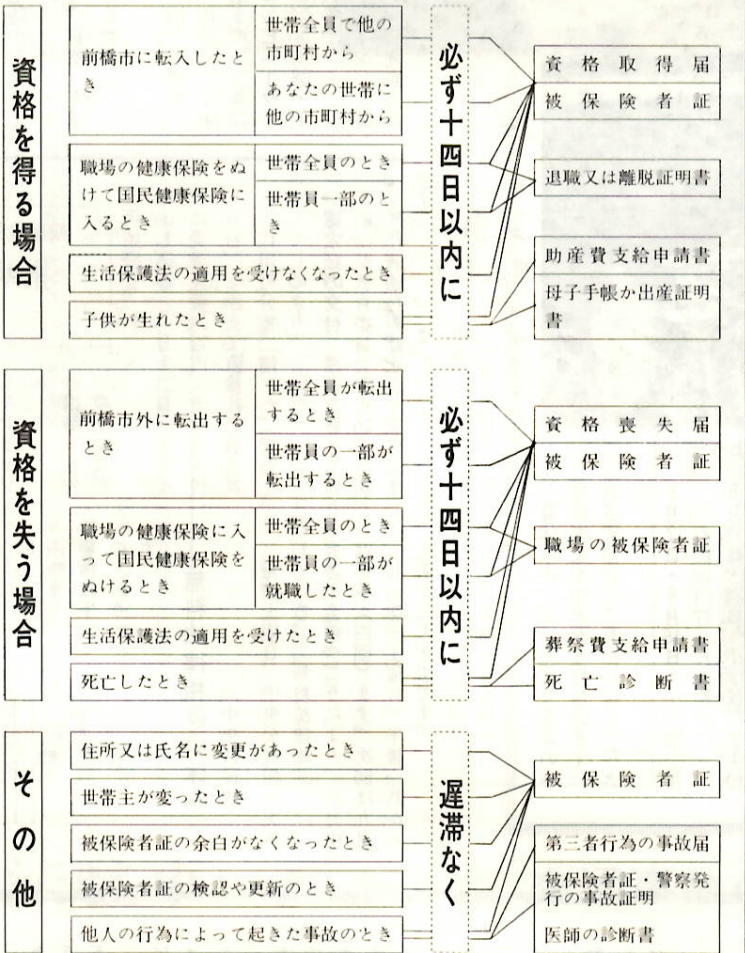 資格を得る場合
前橋市に転入したと
き
世帯全員で他の
市町村から
あなたの世帯に
他の市町村から
職場の健康保険をぬ
けて国民健康保険に
入るとき
世帯全員のとき
世帯員一部のと
き
生活保護法の適用を受けなくなったとき
子供が生れたとき
必ず十四日以内に
資格取得届
被保険者証
退職又は離脱証明書
助産費支給申請書
母子手帳か出産証明
書
資格を失う場合
前橋市外に転出する
とき
世帯全員が転出
するとき
世帯員の一部が
転出するとき
職場の健康保険に入
って国民健康保険を
ぬけるとき
世帯全員のとき
世帯員の一部が
就職したとき
生活保護法の適用を受けたとき
死亡したとき
必ず十四日以内に
資格喪失届
被保険者証
職場の被保険者証
葬祭費支給申請書
死亡診断書
その他
住所又は氏名に変更があったとき
世帯主が変ったとき
被保険者証の余白がなくなったとき
被保険者証の検認や更新のとき
他人の行為によって起きた事故のとき
遅滞なく
被保険者証
第三者行為の事故届
被保険者証・警察発
行の事故証明
医師の診断書